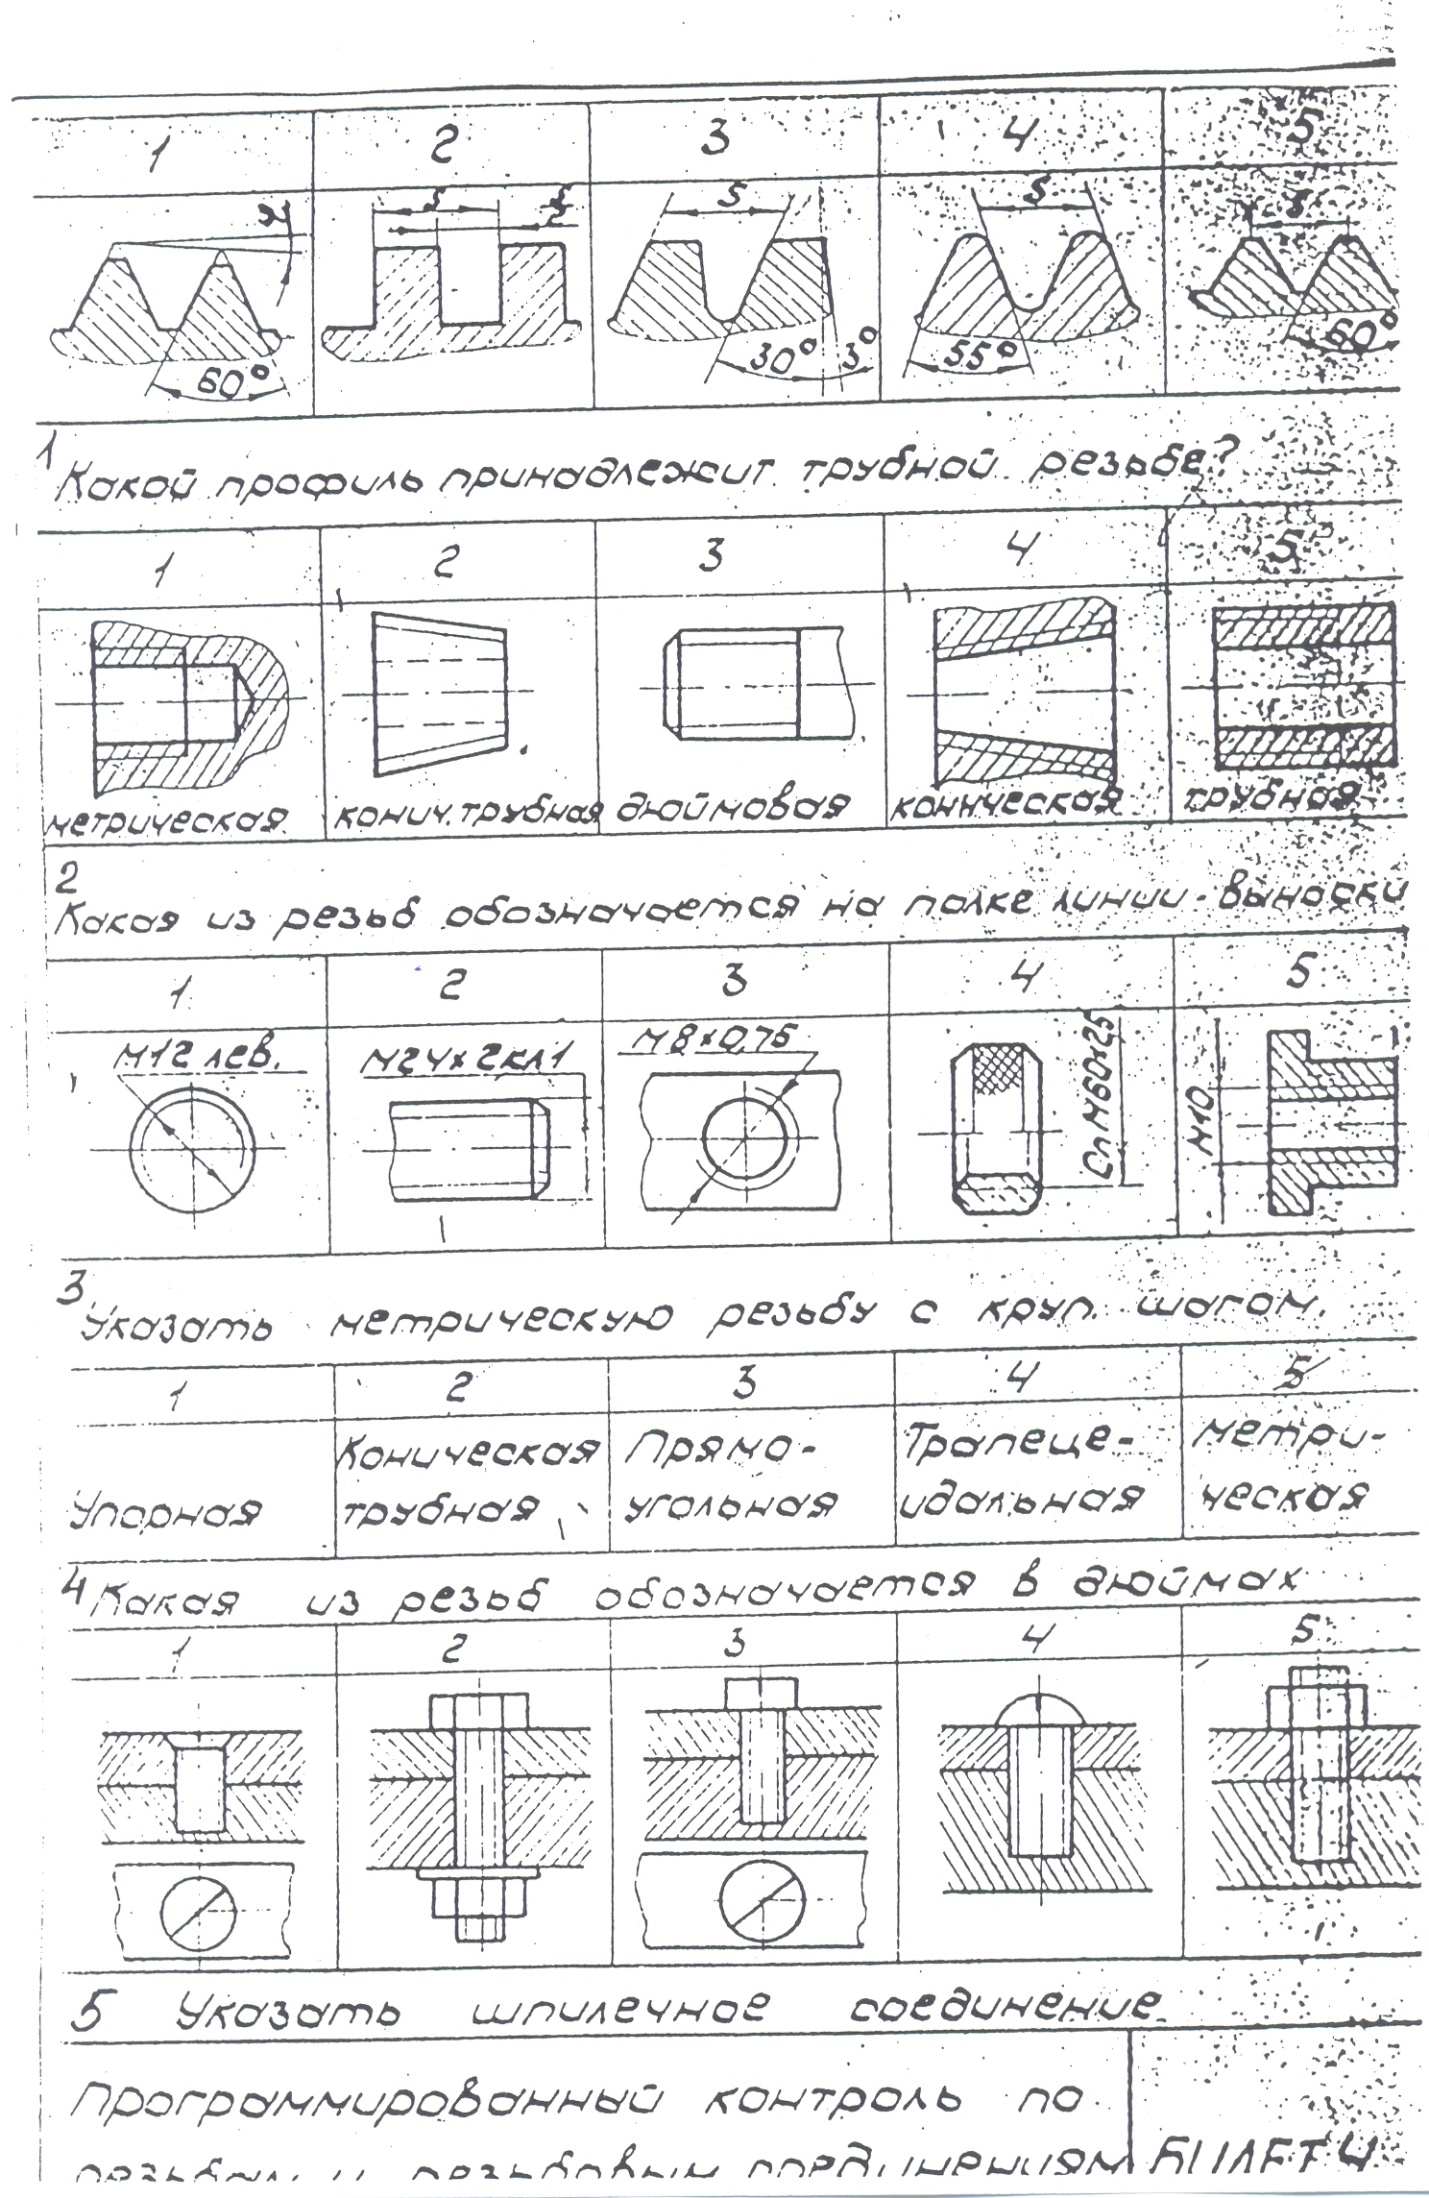 1 2 3 4 5
S S S S
60° 30° 3° 55° 60°
1
Какой профиль принадлежит трубной резьбе?
1 2 3 4 5
метрическая конич. трубная дюймовая коническая трубная
2
Какая из резьб обозначается на полке линии-выноски
1 2 3 4 5
М12 лев. М24×2кл1 М8×0,75 Сп М60×25 М10
3
Указать метрическую резьбу с круп. шагом.
1 2 3 4 5
Коническая Прямо- Трапеце- метри-
Упорная трубная угольная идальная ческая
4 Какая из резьб обозначается в дюймах
1 2 3 4 5
5 Указать шпилечное соединение.
Программированный контроль по
резьбам и резьбовым соединениям БИЛЕТ 4